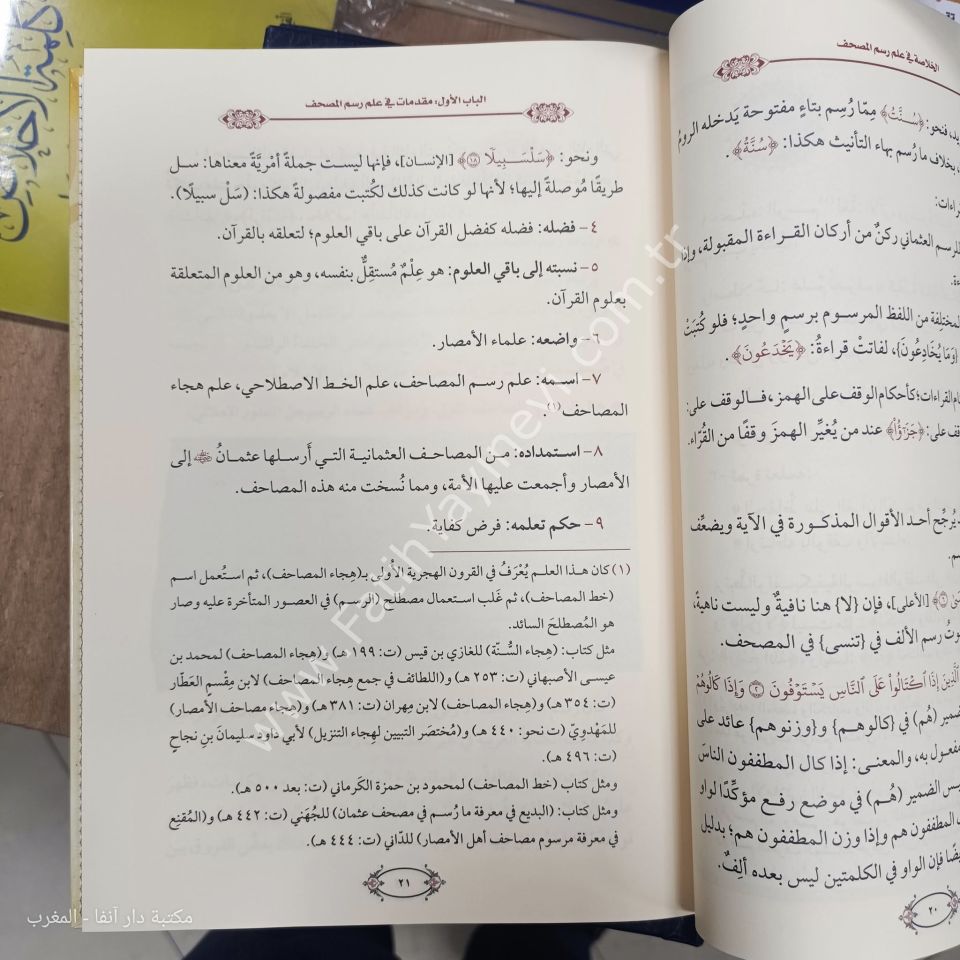 الخلاصة في علم رسم المصحف
فنحو: ﴿سُنَّتُ﴾ مِمّا رُسِم بتاءٍ مفتوحة يَدخله الروم
، بخلاف ما رُسم بهاء التأنيث هكذا: ﴿سُنَّةُ﴾.
للرسم العثماني ركنٌ من أركان القراءة المقبولة، وإذا
المختلفة من اللفظ المرسوم برسمٍ واحدٍ؛ فلو كُتبَتْ
{وَمَا يُخَادِعُونَ}، لفاتتْ قراءةُ: ﴿يَخۡدَعُونَ﴾.
القراءات؛ كأحكام الوقف على الهمز، فالوقف على:
على: ﴿جَزَٰٓؤُاْ﴾ عند من يُغيِّر الهمزَ وقفًا من القُرَّاء.
يُرجِّح أحد الأقوال المذكورة في الآية ويضعِّف
[الأعلى]، فإن {لا} هنا نافيةٌ وليست ناهيةً،
رسم الألف في {تنسى} في المصحف.
ٱلَّذِينَ إِذَا ٱكۡتَالُواْ عَلَى ٱلنَّاسِ يَسۡتَوۡفُونَ ۝٢ وَإِذَا كَالُوهُمۡ
ضمير (هُم) في {كالوهم} و{وزنوهم} عائد على
مفعول به، والمعنى: إذا كال المطففون الناسَ
ليس الضمير (هُم) في موضع رفع مؤكِّدًا لواو
المطففون هم وإذا وزن المطففون هم؛ بدليل
فإن الواو في الكلمتين ليس بعده ألِفٌ.
٢٠
الباب الأول: مقدمات في علم رسم المصحف
ونحو: ﴿سَلۡسَبِيلٗا ۝١٨﴾ [الإنسان]، فإنها ليست جملةً أمْرِيَّةً معناها: سل
طريقًا مُوصلة إليها؛ لأنها لو كانت كذلك لكُتبت مفصولةً هكذا: (سَلْ سبيلًا).
٤- فضله: فضله كفضل القرآن على باقي العلوم؛ لتعلقه بالقرآن.
٥- نسبته إلى باقي العلوم: هو عِلْمٌ مُستَقِلٌّ بنفسه، وهو من العلوم المتعلقة
بعلوم القرآن.
٦- واضعه: علماء الأمصار.
٧- اسمه: علم رسم المصاحف، علم الخط الاصطلاحي، علم هجاء
المصاحف(١).
٨- استمداده: من المصاحف العثمانية التي أَرسلها عثمانُ ﷺ إلى
الأمصار وأجمعت عليها الأمة، ومما نُسخت منه هذه المصاحف.
٩- حكم تعلمه: فرض كفاية.
(١) كان هذا العلم يُعْرَفُ في القرون الهجرية الأُولى بـ(هِجاء المصاحف)، ثم استُعمل اسم
(خط المصاحف)، ثم غَلب استعمال مصطلح (الرسم) في العصور المتأخرة عليه وصار
هو المُصطلحَ السائد.
مثل كتاب: (هِجاء السُّنّة) للغازي بن قيس (ت: ١٩٩ هـ) و(هِجاء المصاحف) لمحمد بن
عيسى الأصبهاني (ت: ٢٥٣ هـ) و(اللطائف في جمع هجاء المصاحف) لابن مِقْسمٍ العَطّار
(ت: ٣٥٤ هـ) و(هِجاء المصاحف) لابن مِهران (ت: ٣٨١ هـ) و(هجاء مصاحف الأمصار)
للمَهْدويّ (ت نحو: ٤٤٠ هـ) و(مُختصَر التبيين لهِجاء التنزيل) لأبي داود سليمانَ بنِ نجاح
(ت: ٤٩٦ هـ).
ومثل كتاب (خط المصاحف) لمحمود بن حمزة الكَرماني (ت: بعد ٥٠٠ هـ).
ومثل كتاب: (البديع في معرفة ما رُسم في مصحف عثمان) للجُهَني (ت: ٤٤٢ هـ) و(المُقنِع
في معرفة مرسوم مصاحف أهل الأمصار) للدّاني (ت: ٤٤٤ هـ).
٢١
www.FatihYayinevi.com.tr
مكتبة دار آنفا - المغرب